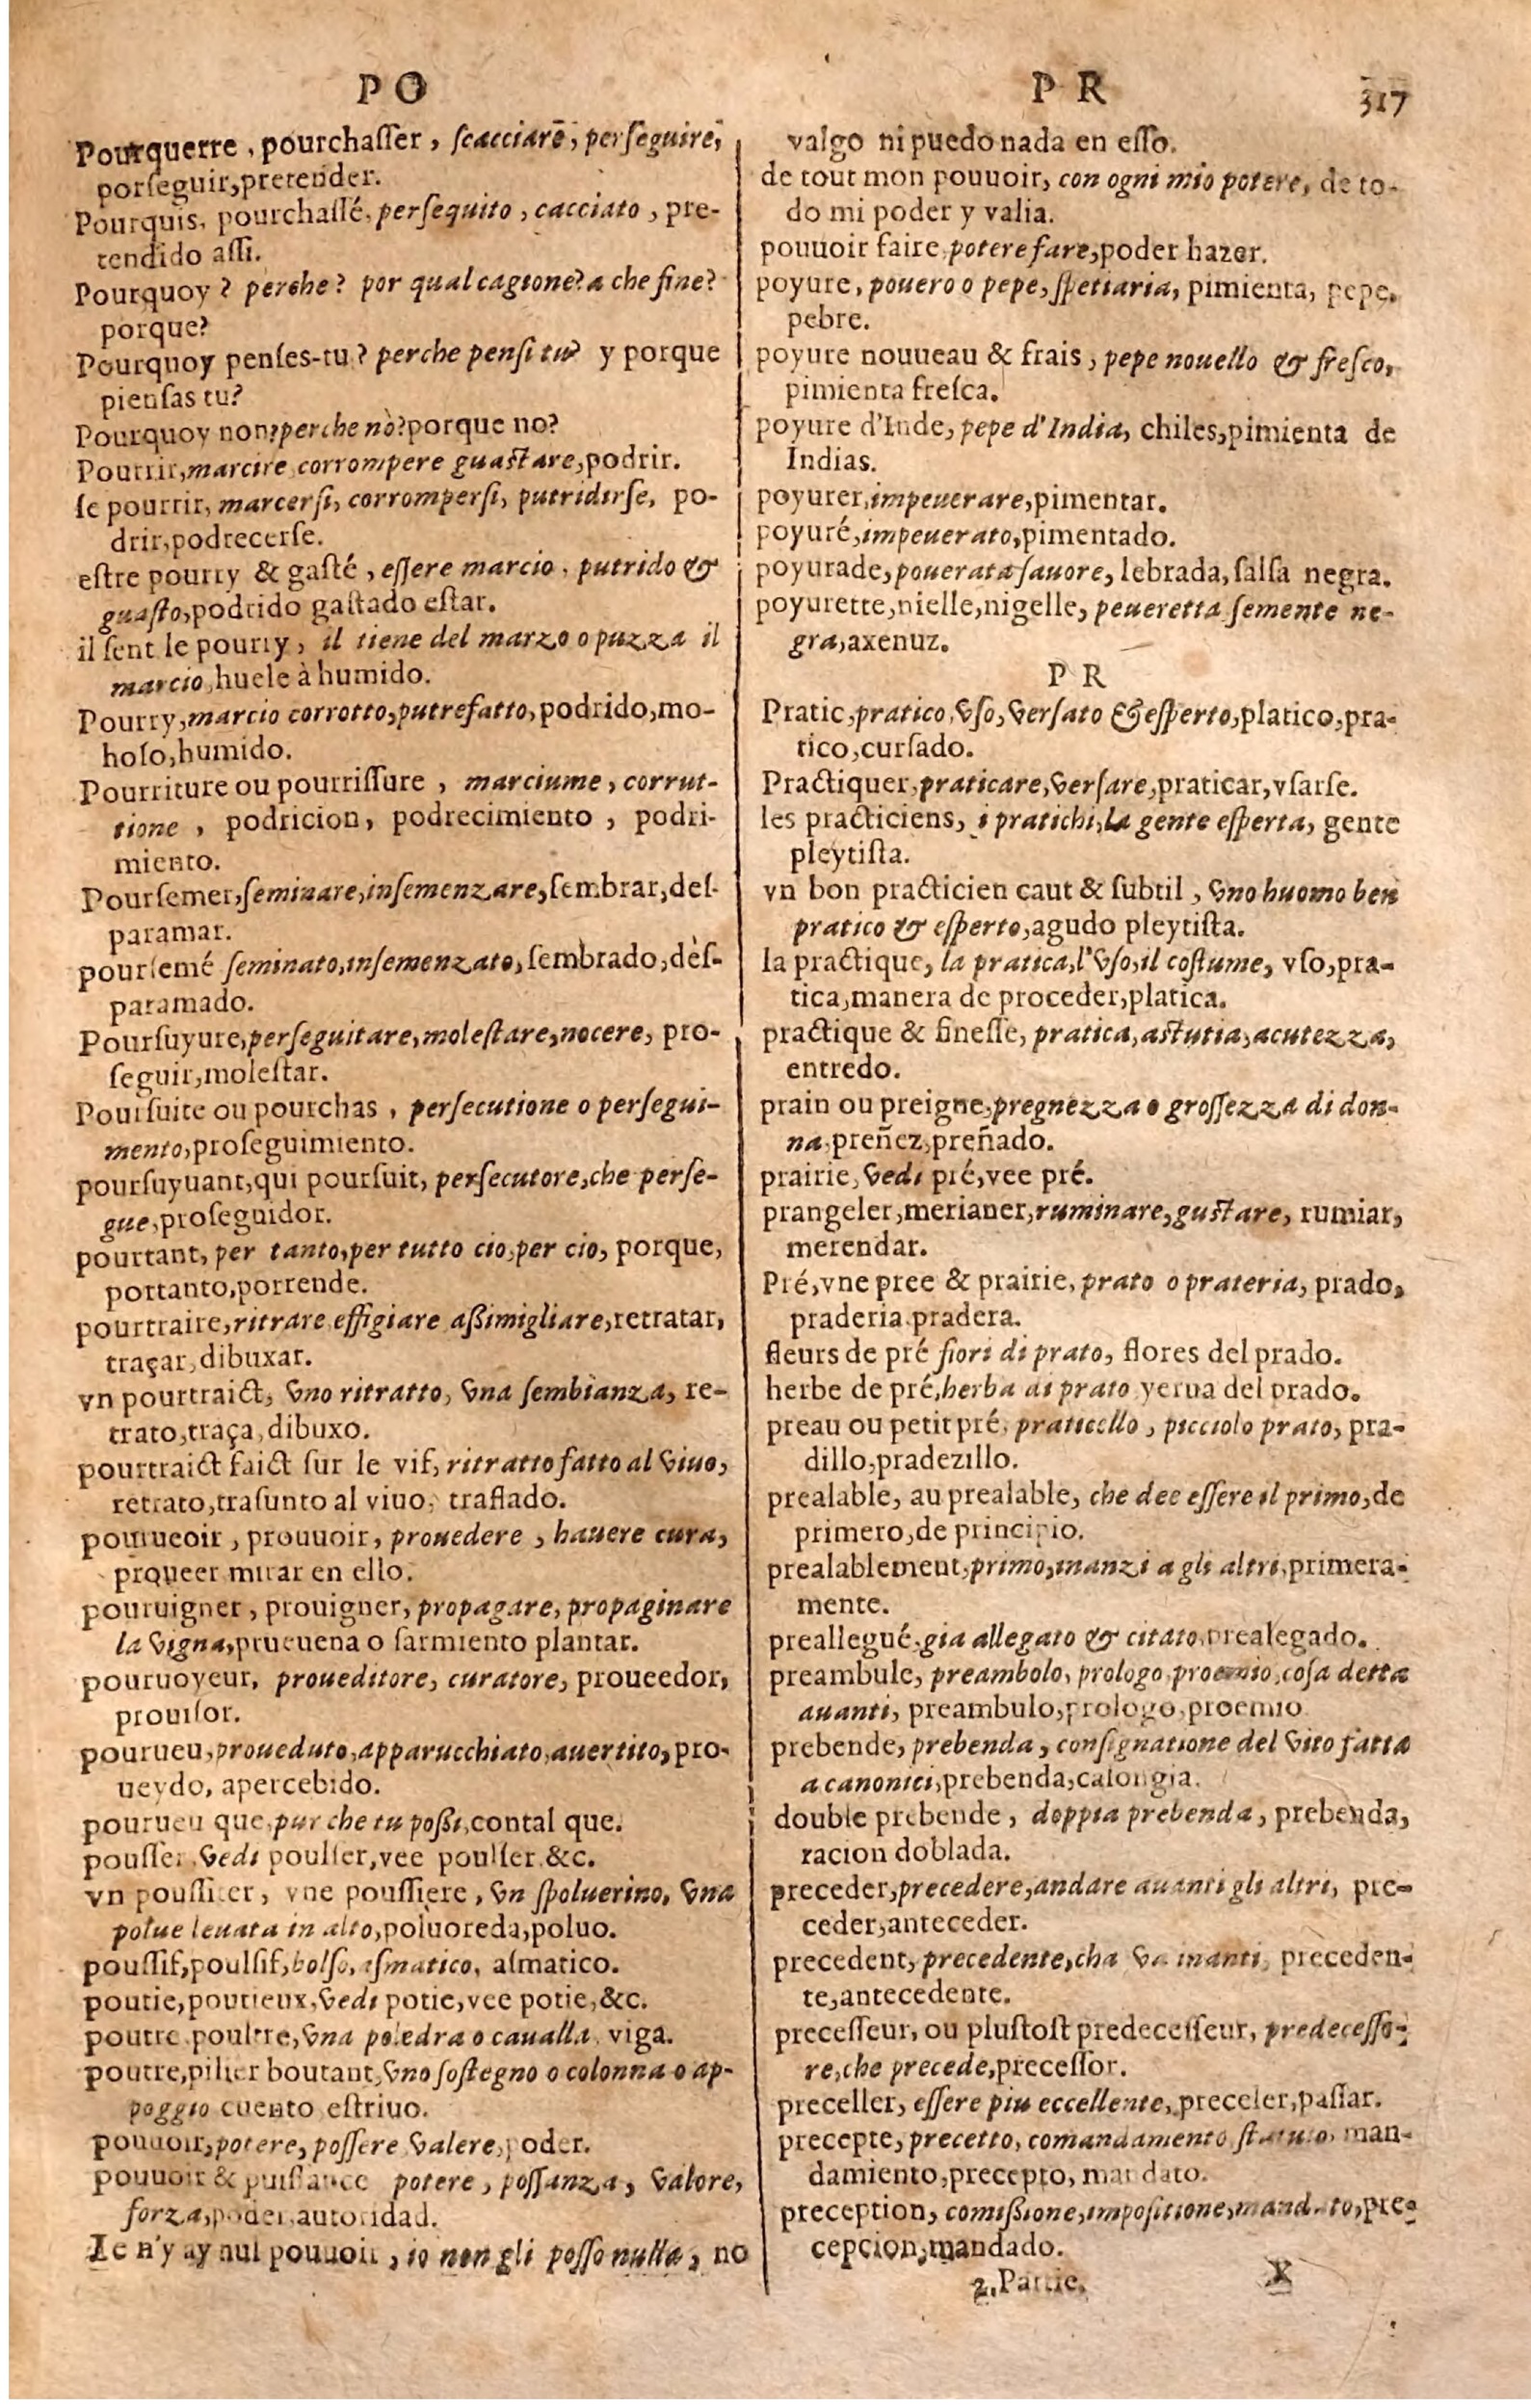 PO
Pourquerre, pourchaſſer, ſcacciare, perſeguire,
porſeguir, pretender.
Pourquis, pourchaſſé, perſequito, cacciato, pre-
tendido aſſi.
Pourquoy? perche? por qual cagione? a che fine?
porque?
Pourquoy penſes-tu? perche penſi tu? y porque
pienſas tu?
Pourquoy non? perche nò? porque no?
Pourrir, marcire corrompere guaſtare, podrir.
ſe pourrir, marcerſi, corromperſi, putridirſe, po-
drir, podrecerſe.
eſtre pourry & gaſté, eſſere marcio, putrido &
guaſto, podrido gaſtado eſtar.
il ſent le pourry, il tiene del marzo o puzza il
marcio, huele à humido.
Pourry, marcio corrotto, putrefatto, podrido, mo-
hoſo, humido.
Pourriture ou pourriſſure, marciume, corrut-
tione, podricion, podrecimiento, podri-
miento.
Pourſemer, ſeminare, inſemenzare, ſembrar, deſ-
paramar.
pourſemé ſeminato, inſemenzato, ſembrado, deſ-
paramado.
Pourſuyure, perſeguitare, moleſtare, nocere, pro-
ſeguir, moleſtar.
Pourſuite ou pourchas, perſecutione o perſegui-
mento, proſeguimiento.
pourſuyuant, qui pourſuit, perſecutore, che perſe-
gue, proſeguidor.
pourtant, per tanto, per tutto cio, per cio, porque,
portanto, porrende.
pourtraire, ritrare effigiare aßimigliare, retratar,
traçar, dibuxar.
vn pourtraict, vno ritratto, vna ſembianza, re-
trato, traça, dibuxo.
pourtraict faict ſur le vif, ritratto fatto al viuo,
retrato, traſunto al viuo, traſlado.
pourueoir, prouuoir, prouedere, hauere cura,
proueer mirar en ello.
pouruigner, prouigner, propagare, propaginare
la vigna, prueuena o ſarmiento plantar.
pouruoyeur, proueditore, curatore, proueedor,
prouiſor.
pourueu, proueduto, apparucchiato, auertito, pro-
ueydo, apercebido.
pourueu que, pur che tu poßi, contal que.
pouſſer vedi poulſer, vee poulſer &c.
vn pouſſier, vne pouſſiere, vn ſpoluerino, vna
polue leuata in alto, poluoreda, poluo.
pouſſif, poulſif, bolſo, aſmatico, aſmatico.
poutie, poutieux, vedi potie, vee potie, &c.
poutre poultre, vna poledra o caualla, viga.
poutre, pilier boutant, vno ſoſtegno o colonna o ap-
poggio cuento eſtriuo.
pouuoir, potere, poſſere valere, poder.
pouuoir & puiſſance potere, poſſanza, valore,
forza, poder, autoridad.
Ie n'y ay nul pouuoir, io non gli poſſo nulla, no
PR 317
valgo ni puedo nada en eſſo.
de tout mon pouuoir, con ogni mio potere, de to-
do mi poder y valia.
pouuoir faire, potere fare, poder hazer.
poyure, pouero o pepe, ſpetiaria, pimienta, pepe,
pebre.
poyure nouueau & frais, pepe nouello & freſco,
pimienta freſca.
poyure d'Inde, pepe d'India, chiles, pimienta de
Indias.
poyurer, impeuerare, pimentar.
poyuré, impeuerato, pimentado.
poyurade, pouerata ſauore, lebrada, ſalſa negra.
poyurette, nielle, nigelle, peueretta ſemente ne-
gra, axenuz.
PR
Pratic, pratico, vſo, verſato & eſperto, platico, pra-
tico, curſado.
Practiquer, praticare, verſare, praticar, vſarſe.
les practiciens, i pratichi, la gente eſperta, gente
pleytiſta.
vn bon practicien caut & ſubtil, vno huomo ben
pratico & eſperto, agudo pleytiſta.
la practique, la pratica, l'vſo, il coſtume, vſo, pra-
tica, manera de proceder, platica.
practique & fineſſe, pratica, aſtutia, acutezza,
entredo.
prain ou preigne, pregnezza o groſſezza di don-
na, preñez, preñado.
prairie, vedi pré, vee pré.
prangeler, merianer, ruminare, guſtare, rumiar,
merendar.
Pré, vne pree & prairie, prato o prateria, prado,
praderia pradera.
fleurs de pré fiori di prato, flores del prado.
herbe de pré, herba di prato yerua del prado.
preau ou petit pré, praticello, picciolo prato, pra-
dillo, pradezillo.
prealable, au prealable, che dee eſſere il primo, de
primero, de principio.
prealablement, primo, inanzi a gli altri, primera-
mente.
preallegué, gia allegato & citato, prealegado.
preambule, preambolo, prologo, proemio, coſa detta
auanti, preambulo, prologo, proemio
prebende, prebenda, conſignatione del vito fatta
a canonici, prebenda, calongia.
double prebende, doppia prebenda, prebenda,
racion doblada.
preceder, precedere, andare auanti gli altri, pre-
ceder, anteceder.
precedent, precedente, cha va inanti, preceden-
te, antecedente.
preceſſeur, ou pluſtoſt predeceſſeur, predeceſſo-
re, che precede, preceſſor.
preceller, eſſere piu eccellente, preceler, paſſar.
precepte, precetto, comandamento ſtatuto, man-
damiento, precepto, mandato.
preception, comißione, impoſitione, mandato, pre-
cepcion, mandado.
2. Partie. X